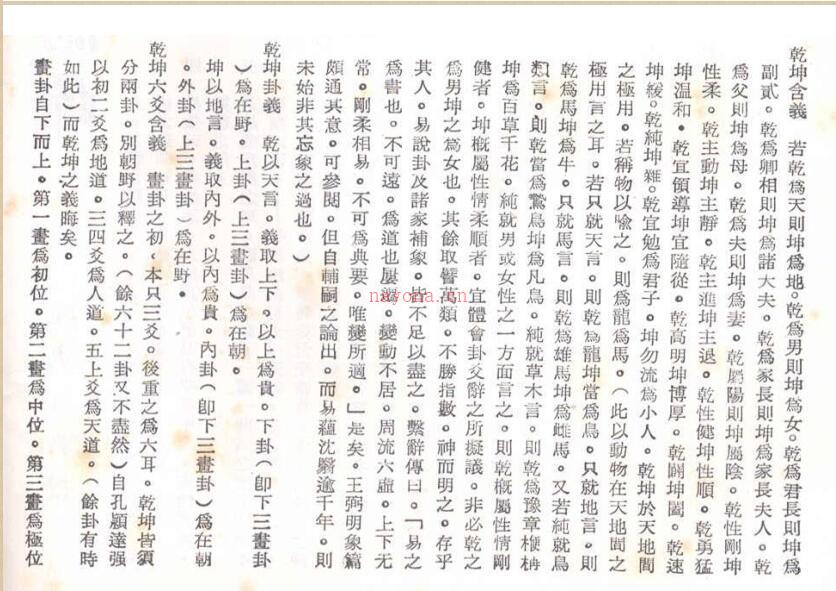 乾坤含義　若乾爲天則坤爲地。乾爲男則坤爲女。乾爲君長則坤爲
副貳。乾爲卿相則坤爲諸大夫。乾爲家長則坤爲家長夫人。乾
爲父則坤爲母。乾爲夫則坤爲妻。乾屬陽則坤屬陰。乾性剛坤
性柔。乾主動坤主靜。乾主進坤主退。乾性健坤性順。乾勇猛
坤溫和。乾宜領導坤宜隨從。乾高明坤博厚。乾闢坤闔。乾速
坤緩。乾純坤雜。乾宜勉爲君子。坤勿流爲小人。乾坤於天地間
之極用。若稱物以喩之。則爲龍爲馬。（此以動物在天地間之
極用言之耳。若只就天言。則乾爲龍坤當爲鳥。只就地言。則
乾爲馬坤爲牛。只就馬言。則乾爲雄馬坤爲雌馬。又若純就鳥
類言。則乾當爲鷙鳥坤爲凡鳥。純就草木言。則乾爲豫章楩柟
坤爲百草千花。純就男或女性之一方面言之。則乾概屬性情剛
健者。坤概屬性情柔順者。宜體會卦爻辭之所擬議。非必乾之
爲男坤之爲女也。其餘取譬萬類。不勝指數。神而明之。存乎
其人。易說卦及諸家補象。皆不足以盡之。繫辭傳曰。「易之
爲書也。不可遠。爲道也屢遷。變動不居。周流六虛。上下无
常。剛柔相易。不可爲典要。唯變所適。」是矣。王弼明象篇
頗通其意。可參閱。但自輔嗣之論出。而易蘊沈翳逾千年。則
未始非其忘象之過也。）
乾坤卦義　乾以天言。義取上下。以上爲貴。下卦（卽下三畫卦
）爲在野。上卦（上三畫卦）爲在朝。
坤以地言。義取內外。以內爲貴。內卦（卽下三畫卦）爲在朝
。外卦（上三畫卦）爲在野。
乾坤六爻含義　畫卦之初。本只三爻。後重之爲六耳。乾坤皆須
分兩卦。別朝野以釋之。（餘六十二卦又不盡然）自孔顧達强
以初二爻爲地道。三四爻爲人道。五上爻爲天道。（餘卦有時
如此）而乾坤之義晦矣。
畫卦自下而上。第一畫爲初位。第二畫爲中位。第三畫爲極位
nayona.cn